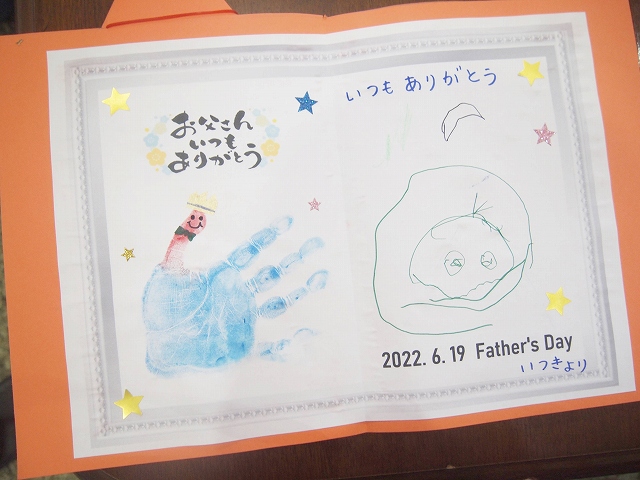 お父さん
いつも
ありがとう
いつも ありがとう
2022. 6. 19 Father's Day
いつきより